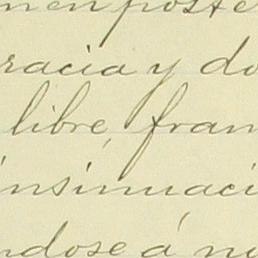 men poste
racia y do
libre, fran
insinuaci
ndose á nu